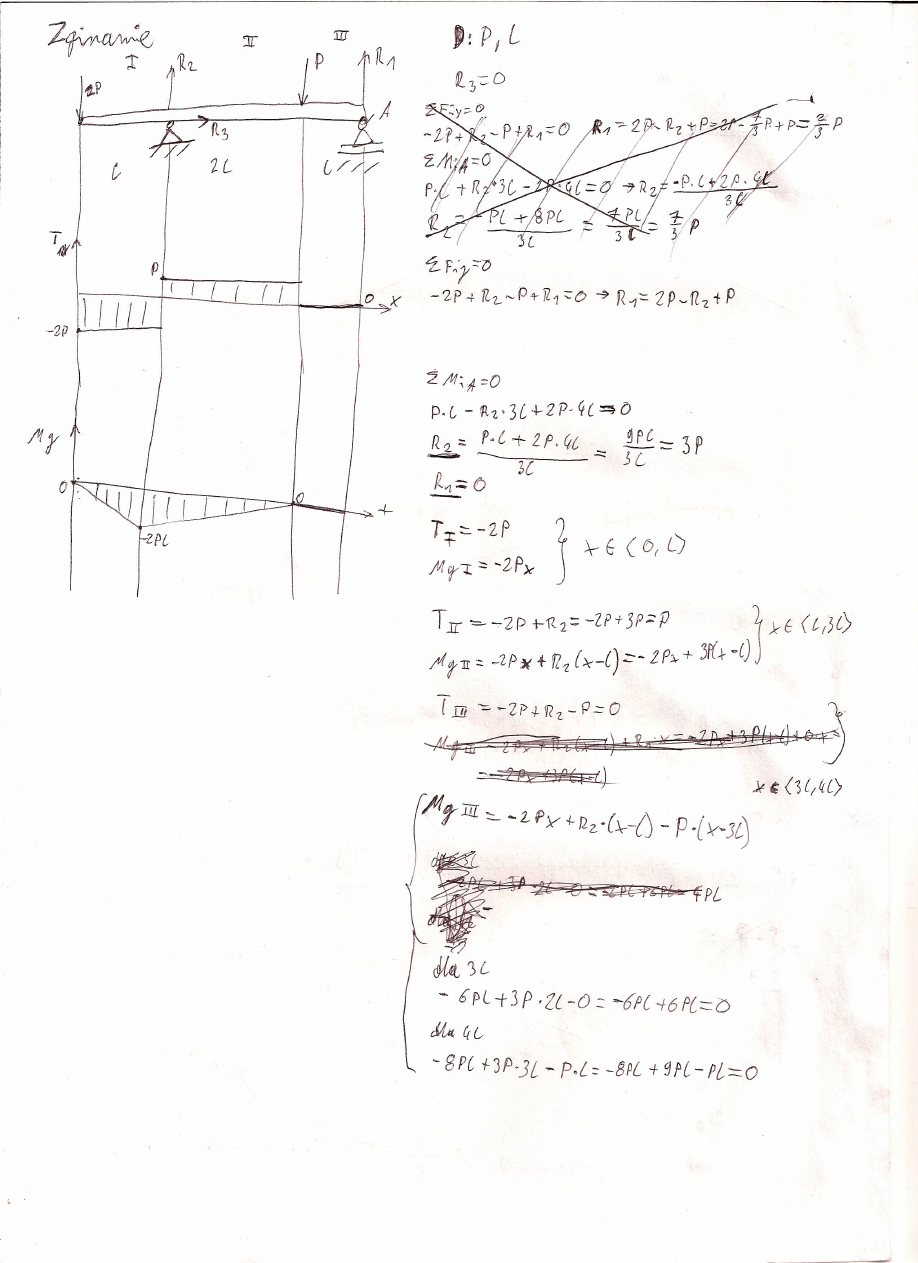 Zginanie
I II III
2P R₂ P R₁
A
R₃
l 2l l
T
P
0 x
-2P
Mg
0 0 x
-2Pl
D: P, l
R₃=0
ΣFiy=0
-2P+R₂-P+R₁=0 R₁=2P-R₂+P=2P-7/3P+P=2/3P
ΣMiA=0
P·l+R₂·3l-2P·4l=0 → R₂=(-P·l+2P·4l)/3l
R₂=(-Pl+8Pl)/3l=7Pl/3l=7/3 P
ΣFiy=0
-2P+R₂-P+R₁=0 → R₁=2P-R₂+P
ΣMiA=0
P·l-R₂·3l+2P·4l=0
R₂=(P·l+2P·4l)/3l=9Pl/3l=3P
R₁=0
T_I=-2P
Mg I=-2Px } x∈⟨0,l⟩
T_II=-2P+R₂=-2P+3P=P
Mg II=-2Px+R₂(x-l)=-2Px+3P(x-l) } x∈⟨l,3l⟩
T_III=-2P+R₂-P=0
x∈⟨3l,4l⟩
Mg III=-2Px+R₂·(x-l)-P·(x-3l)
dla 3l
-6Pl+3P·2l-0=-6Pl+6Pl=0
dla 4l
-8Pl+3P·3l-P·l=-8Pl+9Pl-Pl=0